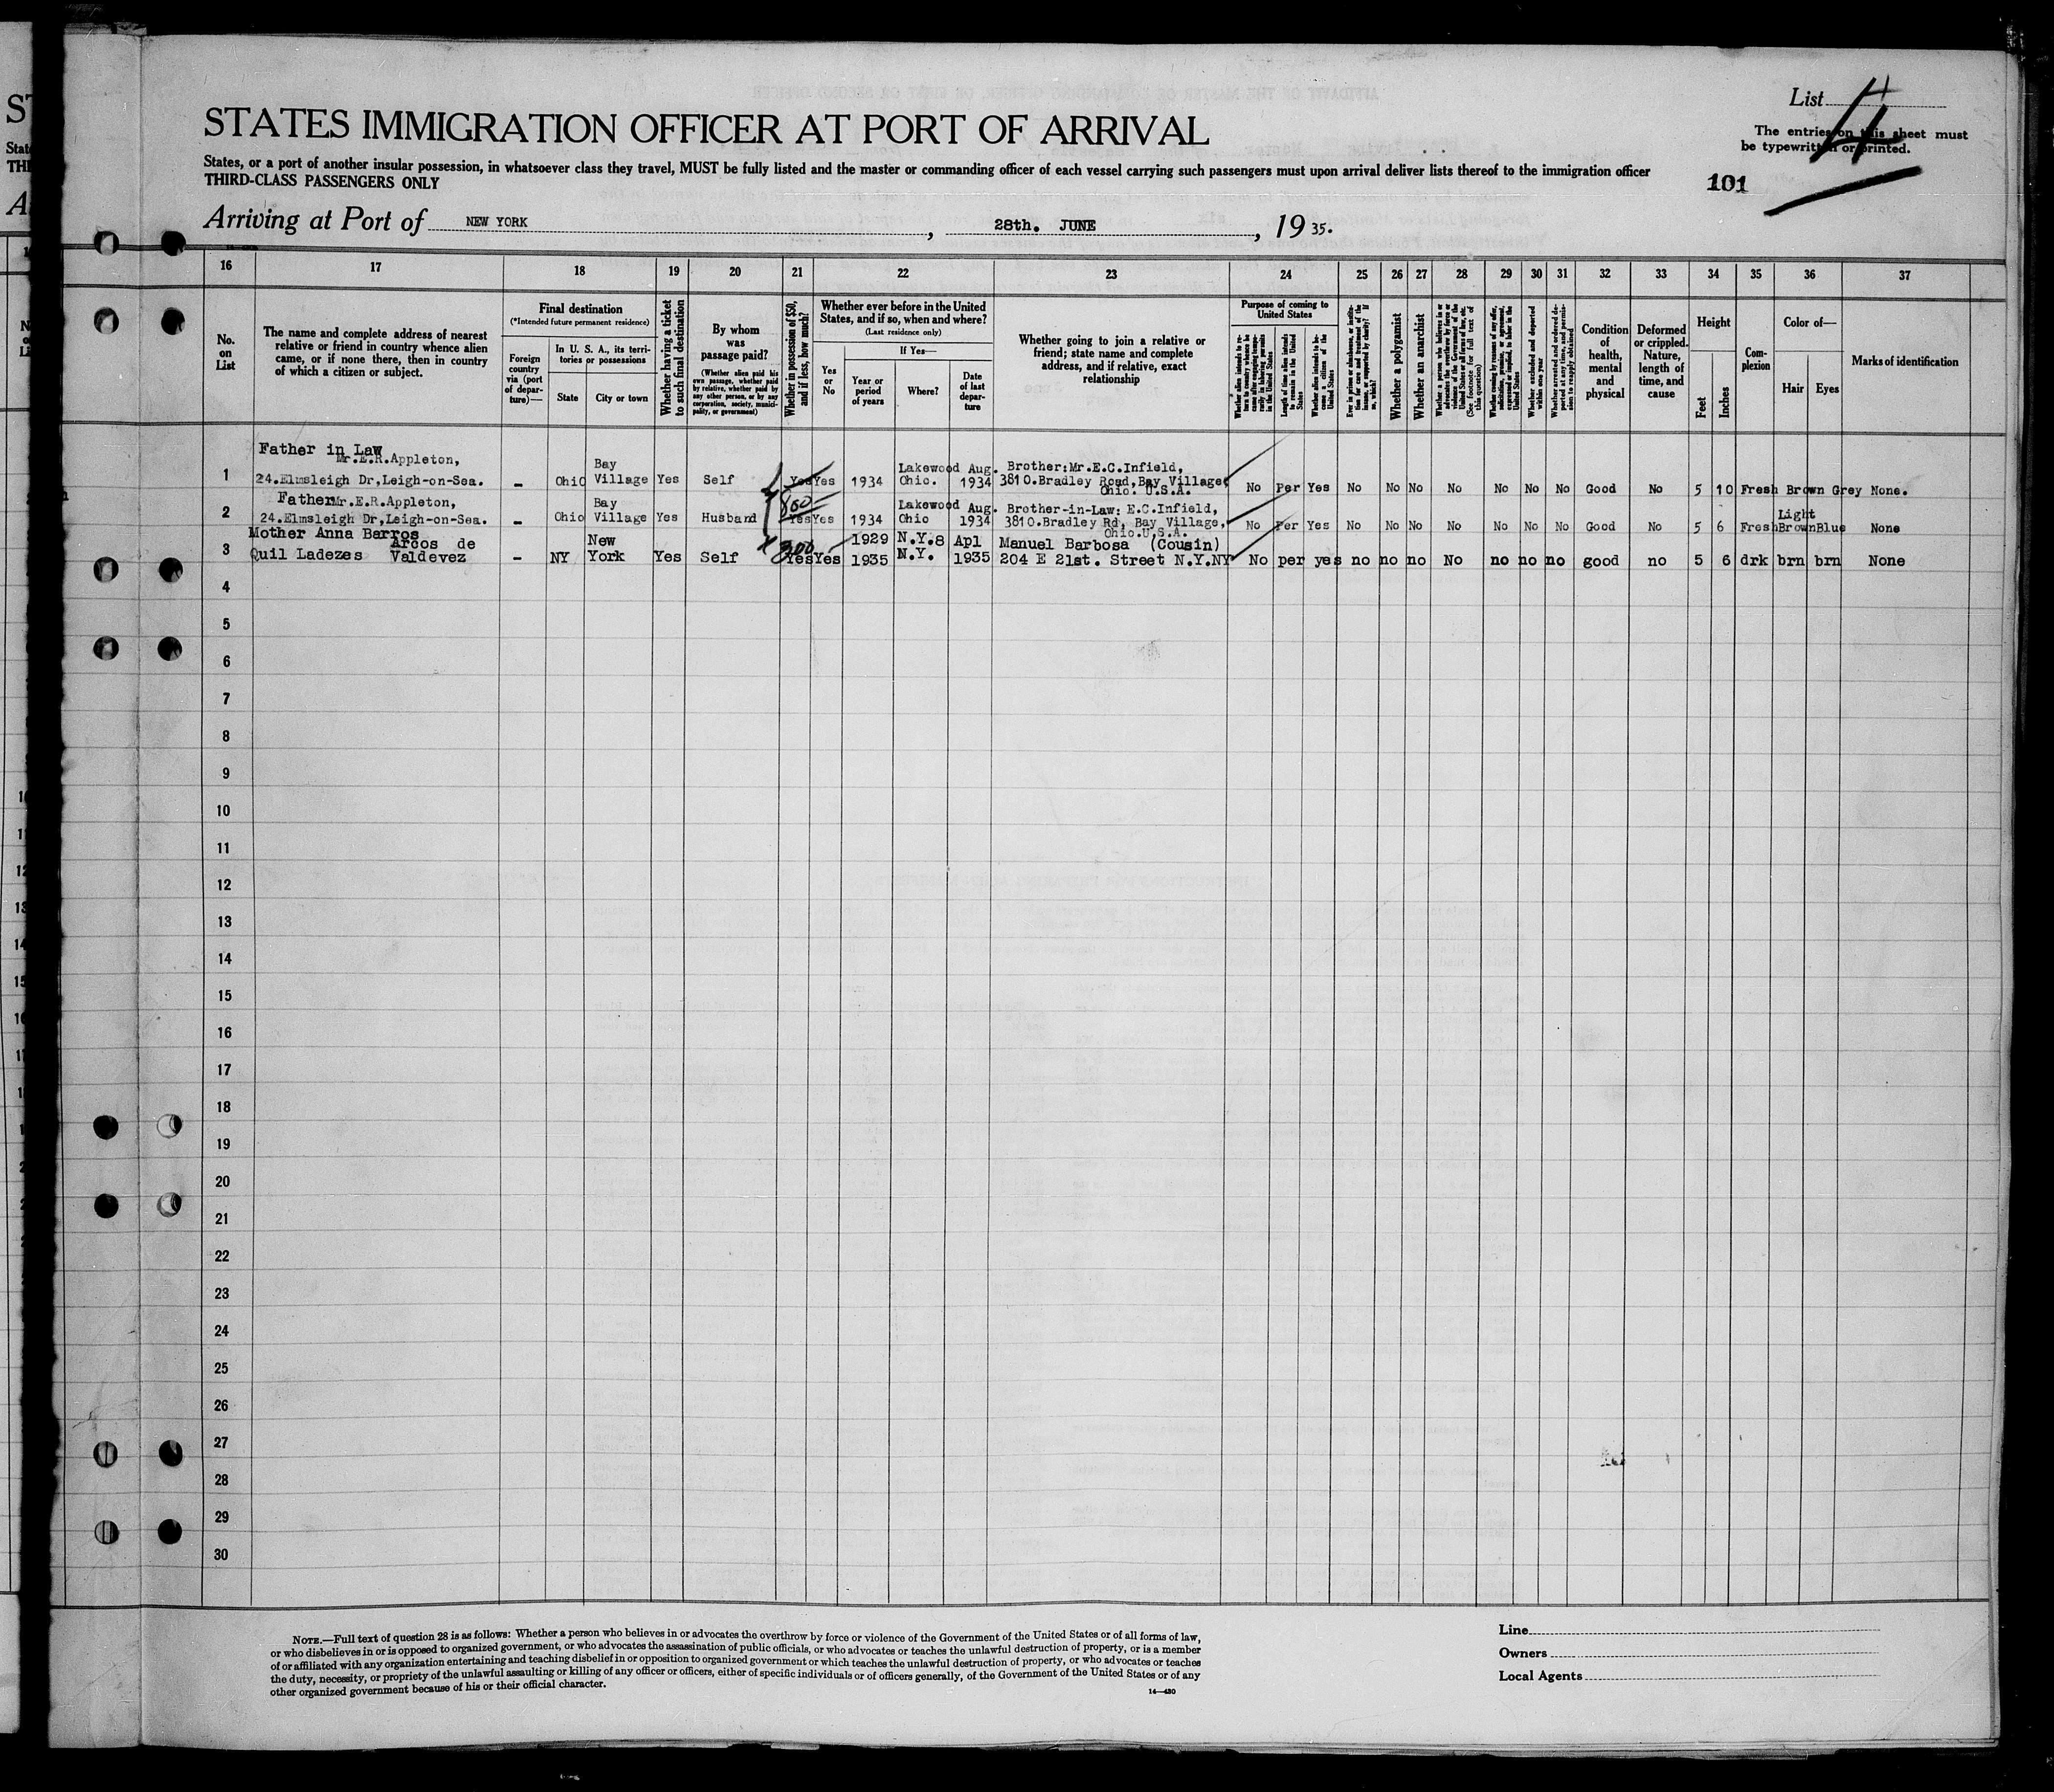 List 4
4
The entries on this sheet must
be typewritten or printed.
101
STATES IMMIGRATION OFFICER AT PORT OF ARRIVAL
States, or a port of another insular possession, in whatsoever class they travel, MUST be fully listed and the master or commanding officer of each vessel carrying such passengers must upon arrival deliver lists thereof to the immigration officer
THIRD-CLASS PASSENGERS ONLY
Arriving at Port of NEW YORK, 28th. JUNE, 19 35.
16 17 18 19 20 21 22 23 24 25 26 27 28 29 30 31 32 33 34 35 36 37
No.
on
List
The name and complete address of nearest
relative or friend in country whence alien
came, or if none there, then in country
of which a citizen or subject.
Final destination
(*Intended future permanent residence)
Foreign
country
via (port
of depar-
ture)—
In U. S. A., its terri-
tories or possessions
State
City or town
Whether having a ticket
to such final destination
By whom
was
passage paid?
(Whether alien paid his
own passage, whether paid
by relative, whether paid by
any other person, or by any
corporation, society, munici-
pality, or government)
Whether in possession of $50,
and if less, how much?
Whether ever before in the United
States, and if so, when and where?
(Last residence only)
Yes
or
No
If Yes—
Year or
period
of years
Where?
Date
of last
depar-
ture
Whether going to join a relative or
friend; state name and complete
address, and if relative, exact
relationship
Purpose of coming to
United States
Whether alien intends to re-
turn to country whence he
came after engaging tempo-
rarily in laboring pursuits
in the United States
Length of time alien intends
to remain in the United
States
Whether alien intends to be-
come a citizen of the
United States
Ever in prison or almshouse, or institu-
tion for care and treatment of the
insane, or supported by charity? If
so, which?
Whether a polygamist
Whether an anarchist
Whether a person who believes in or
advocates the overthrow by force or
violence of the Government of the
United States or all forms of law, etc.
(See footnote for full text of
this question)
Whether coming by reason of any offer,
solicitation, promise, or agreement,
expressed or implied, to labor in the
United States
Whether excluded and deported
within one year
Whether arrested and ordered de-
ported at any time, and permis-
sion to reapply obtained
Condition
of
health,
mental
and
physical
Deformed
or crippled.
Nature,
length of
time, and
cause
Height
Feet
Inches
Com-
plexion
Color of—
Hair
Eyes
Marks of identification
Father in Law
Mr.E.R.Appleton,
1 24.Elmsleigh Dr,Leigh-on-Sea. - Ohio Bay Village Yes Self Yes Yes 1934 Lakewood Ohio. Aug. 1934 Brother:Mr.E.C.Infield,
3810.Bradley Road,Bay Village,
Ohio. U.S.A. No Per Yes No No No No No No No Good No 5 10 Fresh Brown Grey None.
Father Mr.E.R.Appleton, 800
2 24.Elmsleigh Dr,Leigh-on-Sea. - Ohio Bay Village Yes Husband Yes Yes 1934 Lakewood Ohio Aug. 1934 Brother-in-Law: E.C.Infield,
3810.Bradley Rd, Bay Village,
Ohio.U.S.A. No Per Yes No No No No No No No Good No 5 6 Fresh Light Brown Blue None
Mother Anna Barros
Arcos de
3 Quil Ladezes Valdevez - NY New York Yes Self 300 Yes Yes 1929 1935 N.Y.8 N.Y. Apl 1935 Manuel Barbosa (Cousin)
204 E 21st. Street N.Y.NY No per yes no no no No no no no good no 5 6 drk brn brn None
4
5
6
7
8
9
10
11
12
13
14
15
16
17
18
19
20
21
22
23
24
25
26
27
28
29
30
NOTE.—Full text of question 28 is as follows: Whether a person who believes in or advocates the overthrow by force or violence of the Government of the United States or of all forms of law,
or who disbelieves in or is opposed to organized government, or who advocates the assassination of public officials, or who advocates or teaches the unlawful destruction of property, or is a member
of or affiliated with any organization entertaining and teaching disbelief in or opposition to organized government or which teaches the unlawful destruction of property, or who advocates or teaches
the duty, necessity, or propriety of the unlawful assaulting or killing of any officer or officers, either of specific individuals or of officers generally, of the Government of the United States or of any
other organized government because of his or their official character.
14—480
Line
Owners
Local Agents